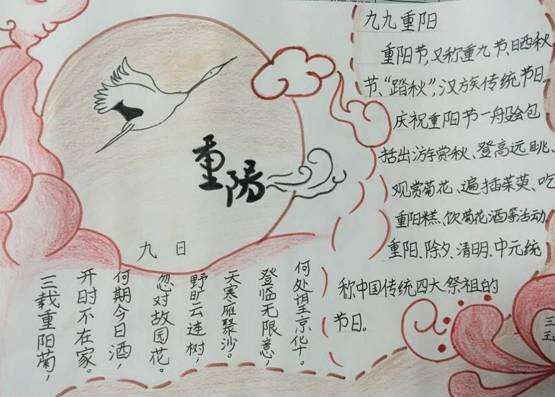 九九重阳
重阳节,又称重九节、晒秋
节、“踏秋”,汉族传统节日。
庆祝重阳节一般会包
括出游赏秋、登高远眺、
观赏菊花、遍插茱萸、吃
重阳糕、饮菊花酒等活动
重阳、除夕、清明、中元统
称中国传统四大祭祖的
节日。
重陽
九 日
三载重阳菊，
开时不在家。
何期今日酒，
忽对故园花。
野旷云连树，
天寒雁聚沙。
登临无限意，
何处望京华。